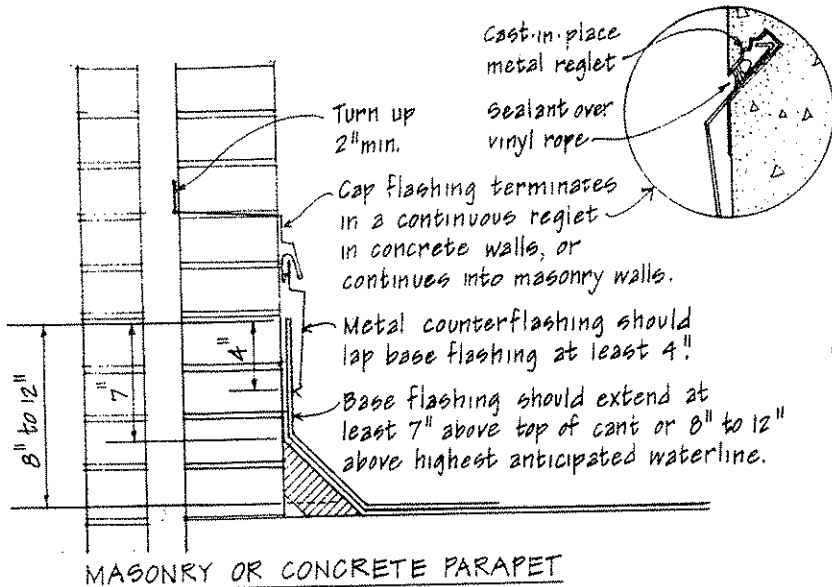 Cast-in-place
metal reglet
Sealant over
vinyl rope
Turn up
2" min.
Cap flashing terminates
in a continuous reglet
in concrete walls, or
continues into masonry walls.
Metal counterflashing should
lap base flashing at least 4".
Base flashing should extend at
least 7" above top of cant or 8" to 12"
above highest anticipated waterline.
4"
7"
8" to 12"
MASONRY OR CONCRETE PARAPET